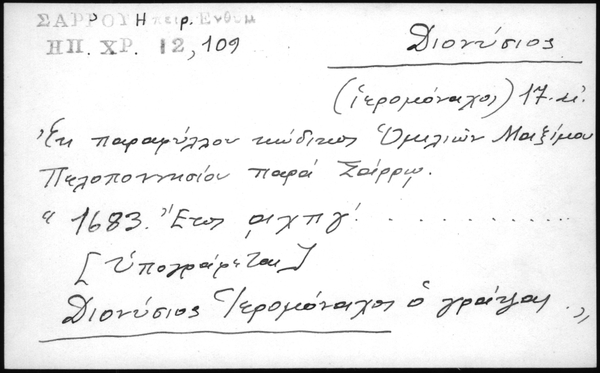 ΣΑΡΡΟΥ Ηπειρ. Ενθυμ
ΗΠ. ΧΡ. 12, 109
Διονύσιος
(ἱερομόναχος) 17. αἰ.
Ἐκ παραφύλλου κώδικος Ὁμιλιῶν Μαξίμου
Πελοποννησίου παρά Σάρρῳ.
"1683. Ἔτος αχπγ'. . . . . . . . . . .
[Ὑπογράφεται]
Διονύσιος Ἱερομόναχος ὁ γράψας . "